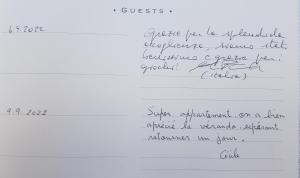 · GUESTS ·
6.9.2022
Grazie per la splendida
accoglienza, siamo stati
benissimo e grazie per i
giochi!
(Italia)
9.9.2022
Super appartement, on a bien
aprécié la véranda, espérant
retourner un jour.